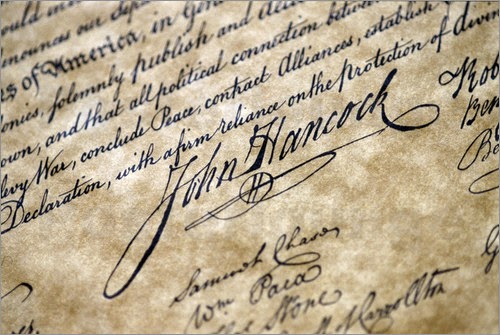 nounces our
es of America, in Gen
onies, solemnly publish and
own, and that all political connection between
levy War, conclude Peace, contract Alliances, establish
Declaration, with a firm reliance on the protection of divin
John Hancock
Rob
Ben
Be
Samuel Chase
Wm Paca
Stone